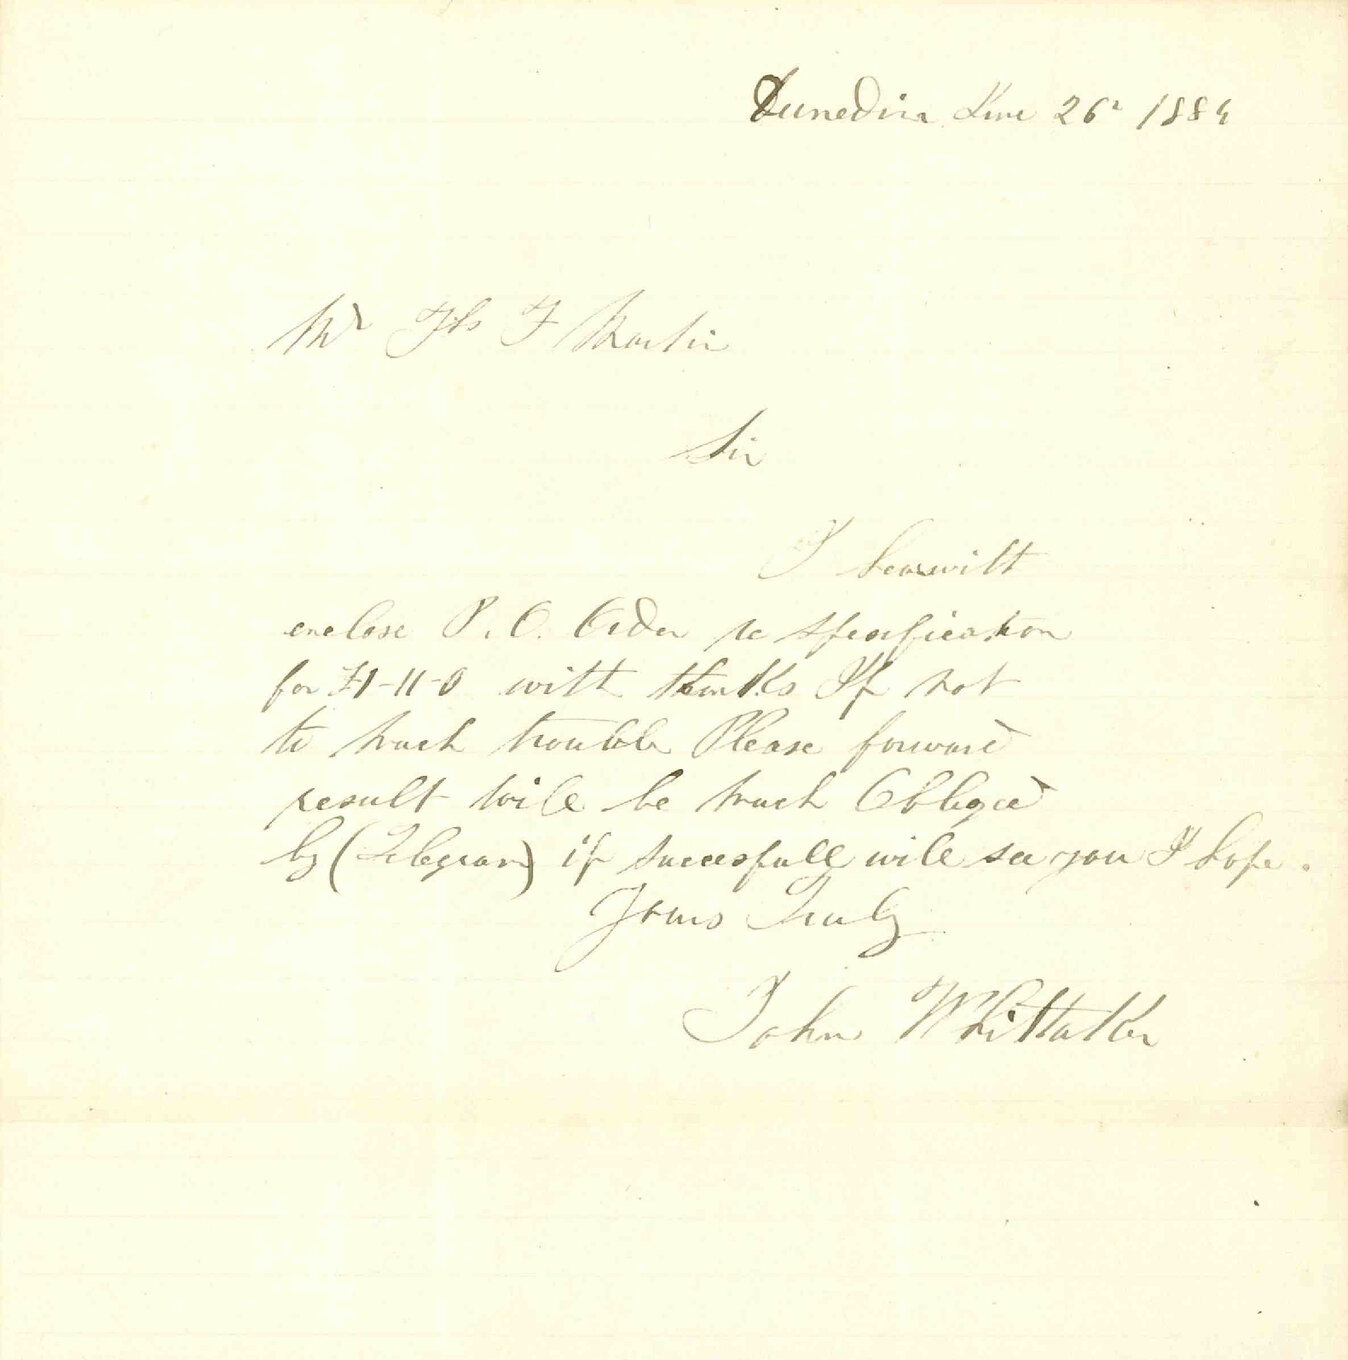 Dunedin June 26 1884
Mr Ths F Martin
Sir
I herewith
enclose P. O. Order re specification
for £1-11-0 with thanks If not
to much trouble Please forward
result will be much Obliged
by (Telegram) if successfull will see you I hope.
Yours Truly
John Whittaker